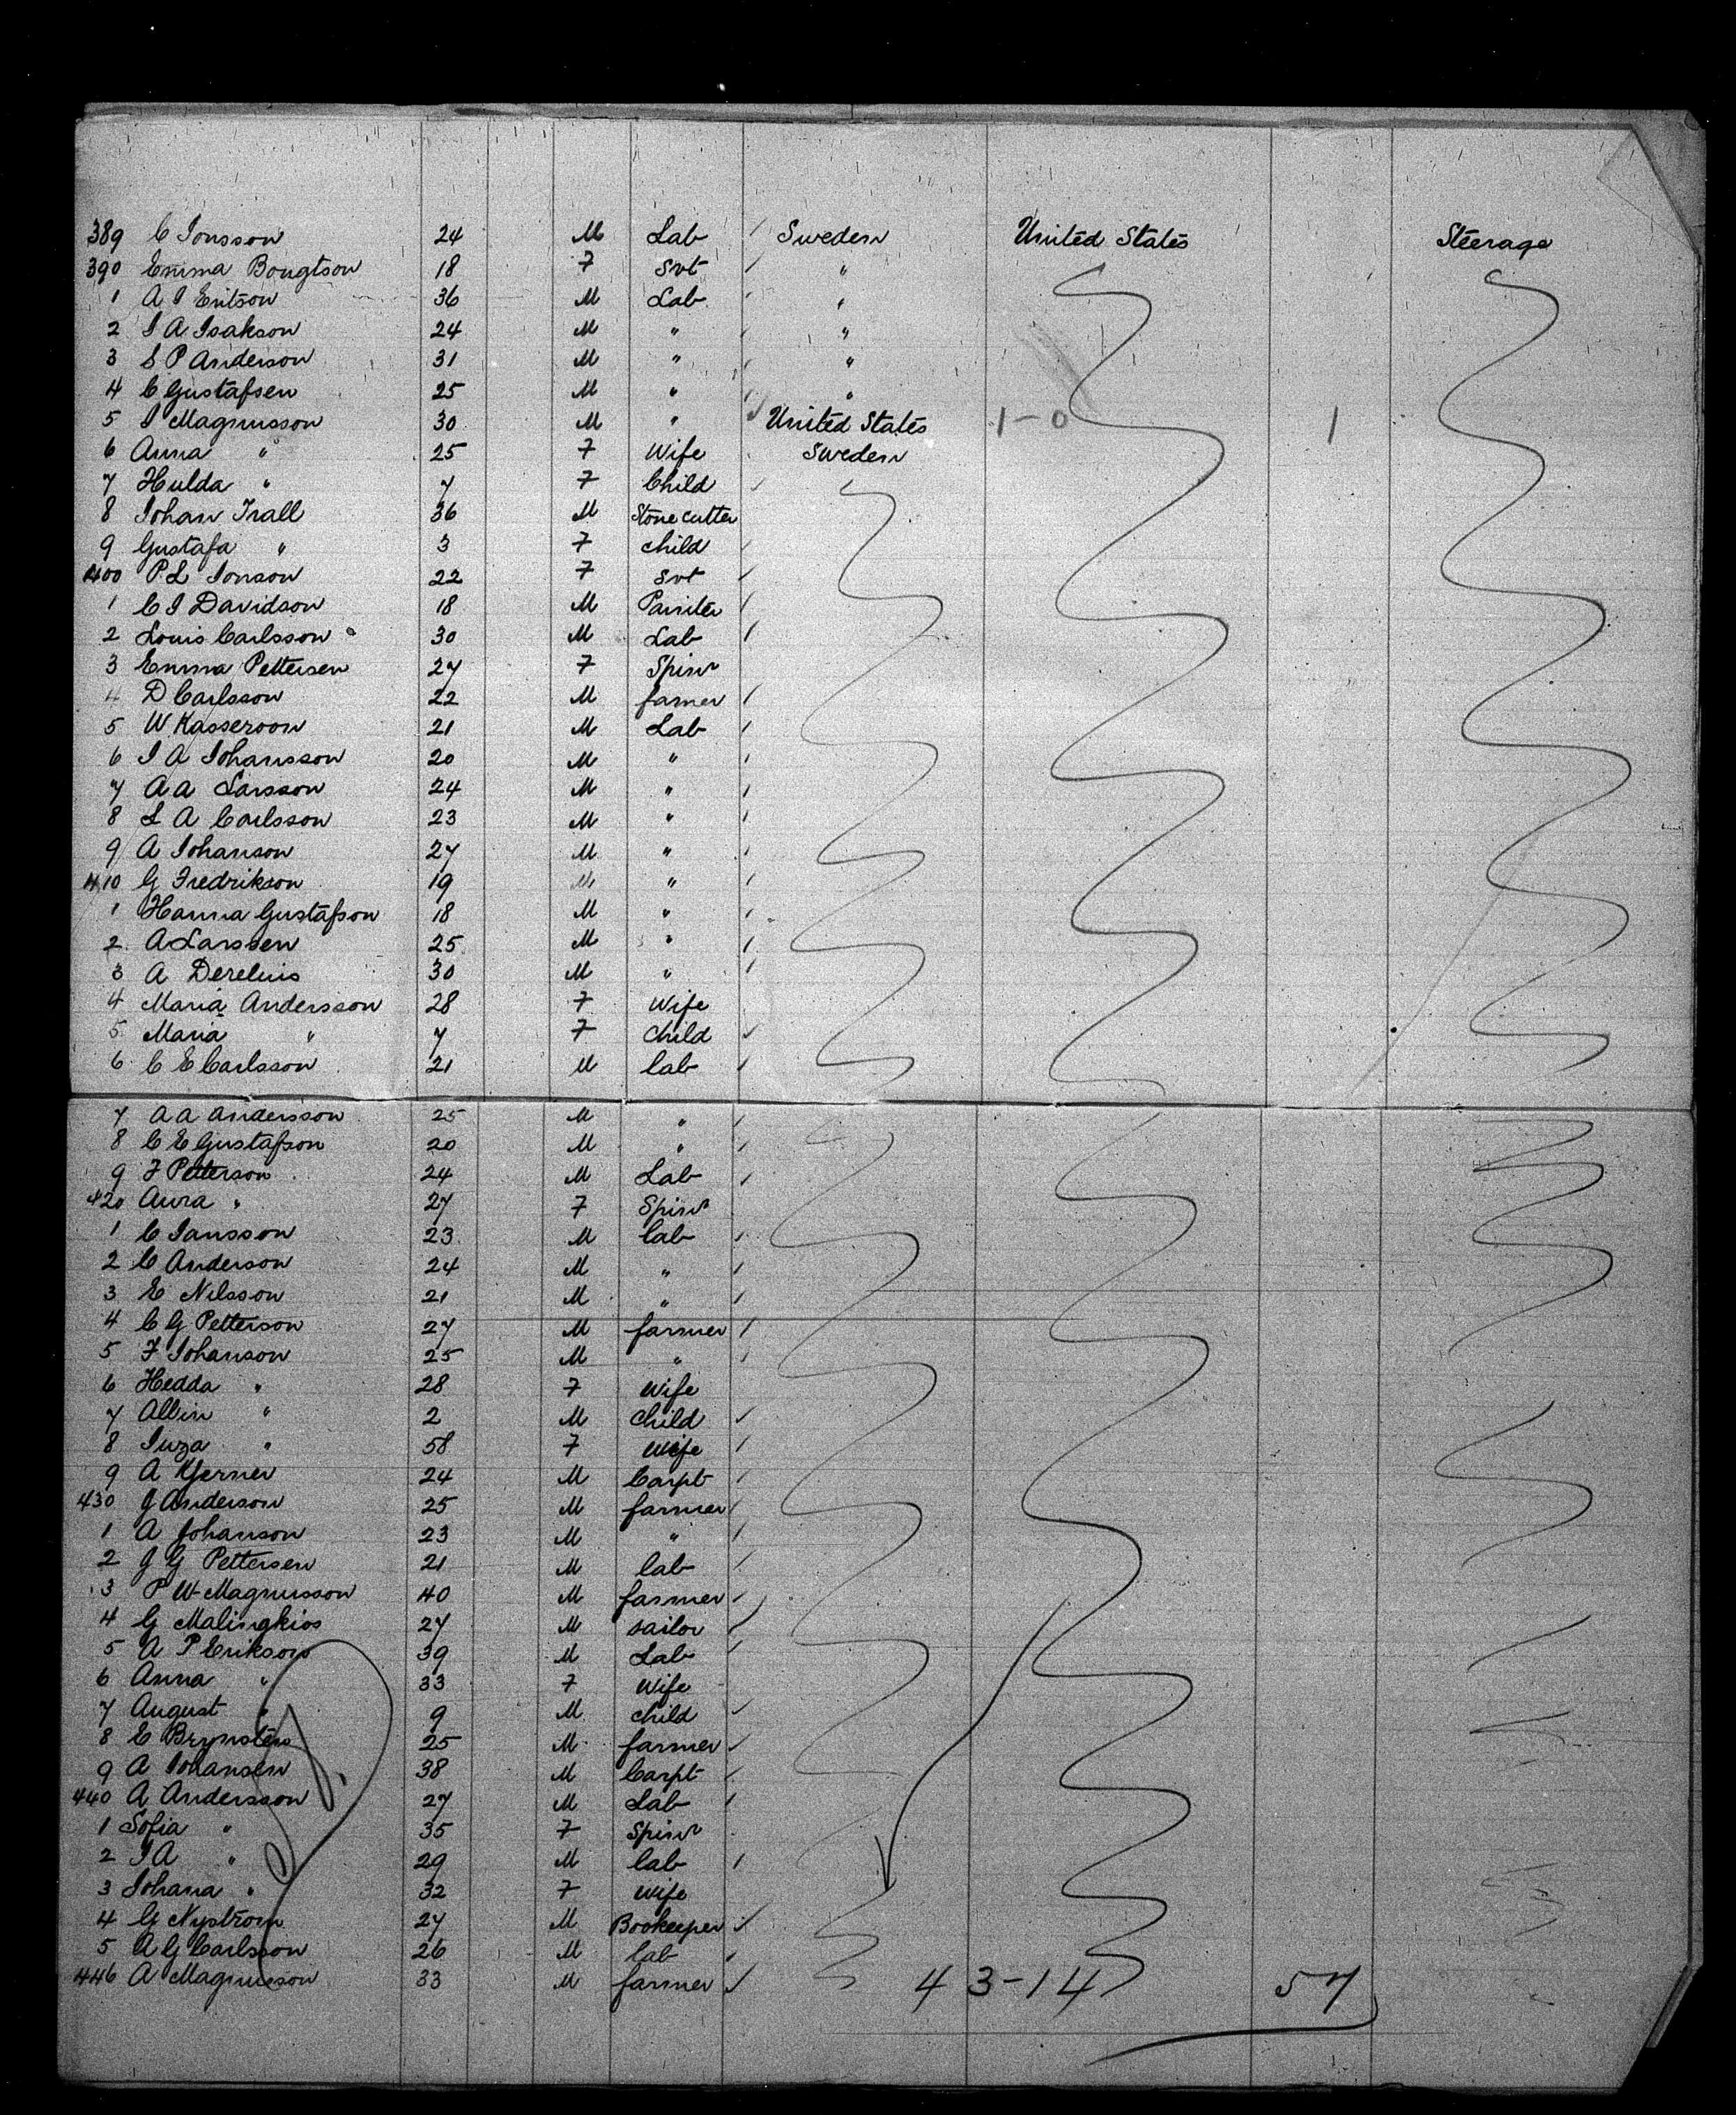 389 C Jonsson 24 M Lab Sweden United States Steerage
390 Emma Bougtson 18 F Svt "
1 A I Eritson 36 M Lab "
2 I A Isakson 24 M " "
3 S P Anderson 31 M " "
4 C Gustafsen 25 M " "
5 I Magnusson 30 M " United States 1-0 1
6 Anna " 25 F Wife Sweden
7 Hulda " 7 F Child
8 Johan Trall 36 M Stone cutter
9 Gustafa " 3 F child
400 P L Jonson 22 F Svt
1 C I Davidson 18 M Painter
2 Louis Carlsson 30 M Lab
3 Emma Pettersen 27 F Spinr
4 D Carlsson 22 M farmer
5 W Kasseroon 21 M Lab
6 I A Johansson 20 M "
7 A A Larsson 24 M "
8 L A Carlsson 23 M "
9 A Johanson 27 M "
410 G Fredrikson 19 M "
1 Hanna Gustafson 18 M "
2 A Larssen 25 M "
3 A Derelius 30 M "
4 Maria Andersson 28 F Wife
5 Maria " 7 F child
6 C E Carlsson 21 M lab
7 A A Andersson 25 M "
8 C E Gustafson 20 M "
9 F Petterson 24 M Lab
420 Aura " 27 F Spinr
1 C Jansson 23 M lab
2 C Anderson 24 M "
3 E Nilsson 21 M "
4 C G Petterson 27 M farmer
5 F Johanson 25 M "
6 Hedda " 28 F Wife
7 Albin " 2 M child
8 Inza " 58 F wife
9 A Kjerner 24 M Carpt
430 J Anderson 25 M farmer
1 A Johanson 23 M "
2 J G Pettersen 21 M lab
3 P W Magnusson 40 M farmer
4 G Malingkios 27 M sailor
5 A P Erikson 39 M Lab
6 Anna " 33 F Wife
7 August " 9 M child
8 E Brynsten 25 M farmer
9 A Johansen 38 M Carpt
440 A Andersson 27 M Lab
1 Sofia " 35 F Spinr
2 I A " 29 M lab
3 Johana " 32 F wife
4 G Nystrom 27 M Bookeeper
5 A G Carlsson 26 M lab
446 A Magnusson 33 M farmer 43-14 57